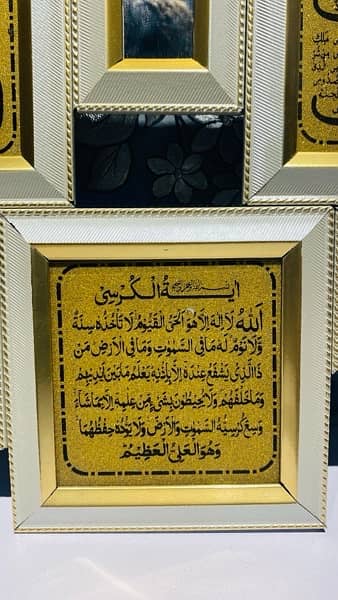 ملك
اية الكرسى بسم الله الرحمن الرحيم
الله لا اله الا هو الحى القيوم لا تأخذه سنة
ولا نوم له مافى السموت ومافى الارض من
ذا الذى يشفع عنده الا باذنه يعلم مابين ايديهم
وماخلفهم ولا يحيطون بشىء من علمه الا بماشاء
وسع كرسيه السموت والارض ولا يؤده حفظهما
وهو العلى العظيم